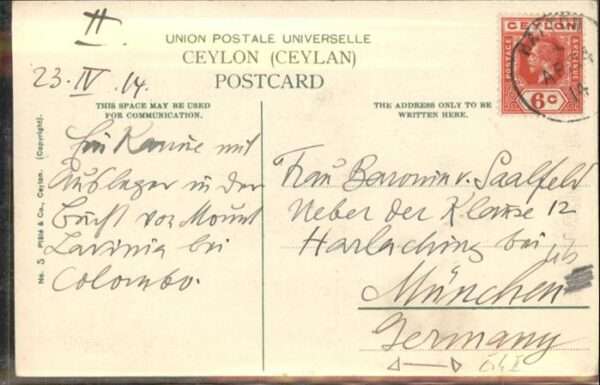 II
UNION POSTALE UNIVERSELLE
CEYLON (CEYLAN)
POSTCARD
23. IV. 14.
THIS SPACE MAY BE USED
FOR COMMUNICATION.
THE ADDRESS ONLY TO BE
WRITTEN HERE.
CEYLON
POSTAGE
REVENUE
6c
AP
14
Ein Kanue mit
Ausleger in der
Bucht von Mount
Lavinia bei
Colombo.
Frau Baronin v. Saalfeld
Ueber der Klause 12
Harlaching bei
München
Germany
No. 5 Plâté & Co., Ceylon. (Copyright).